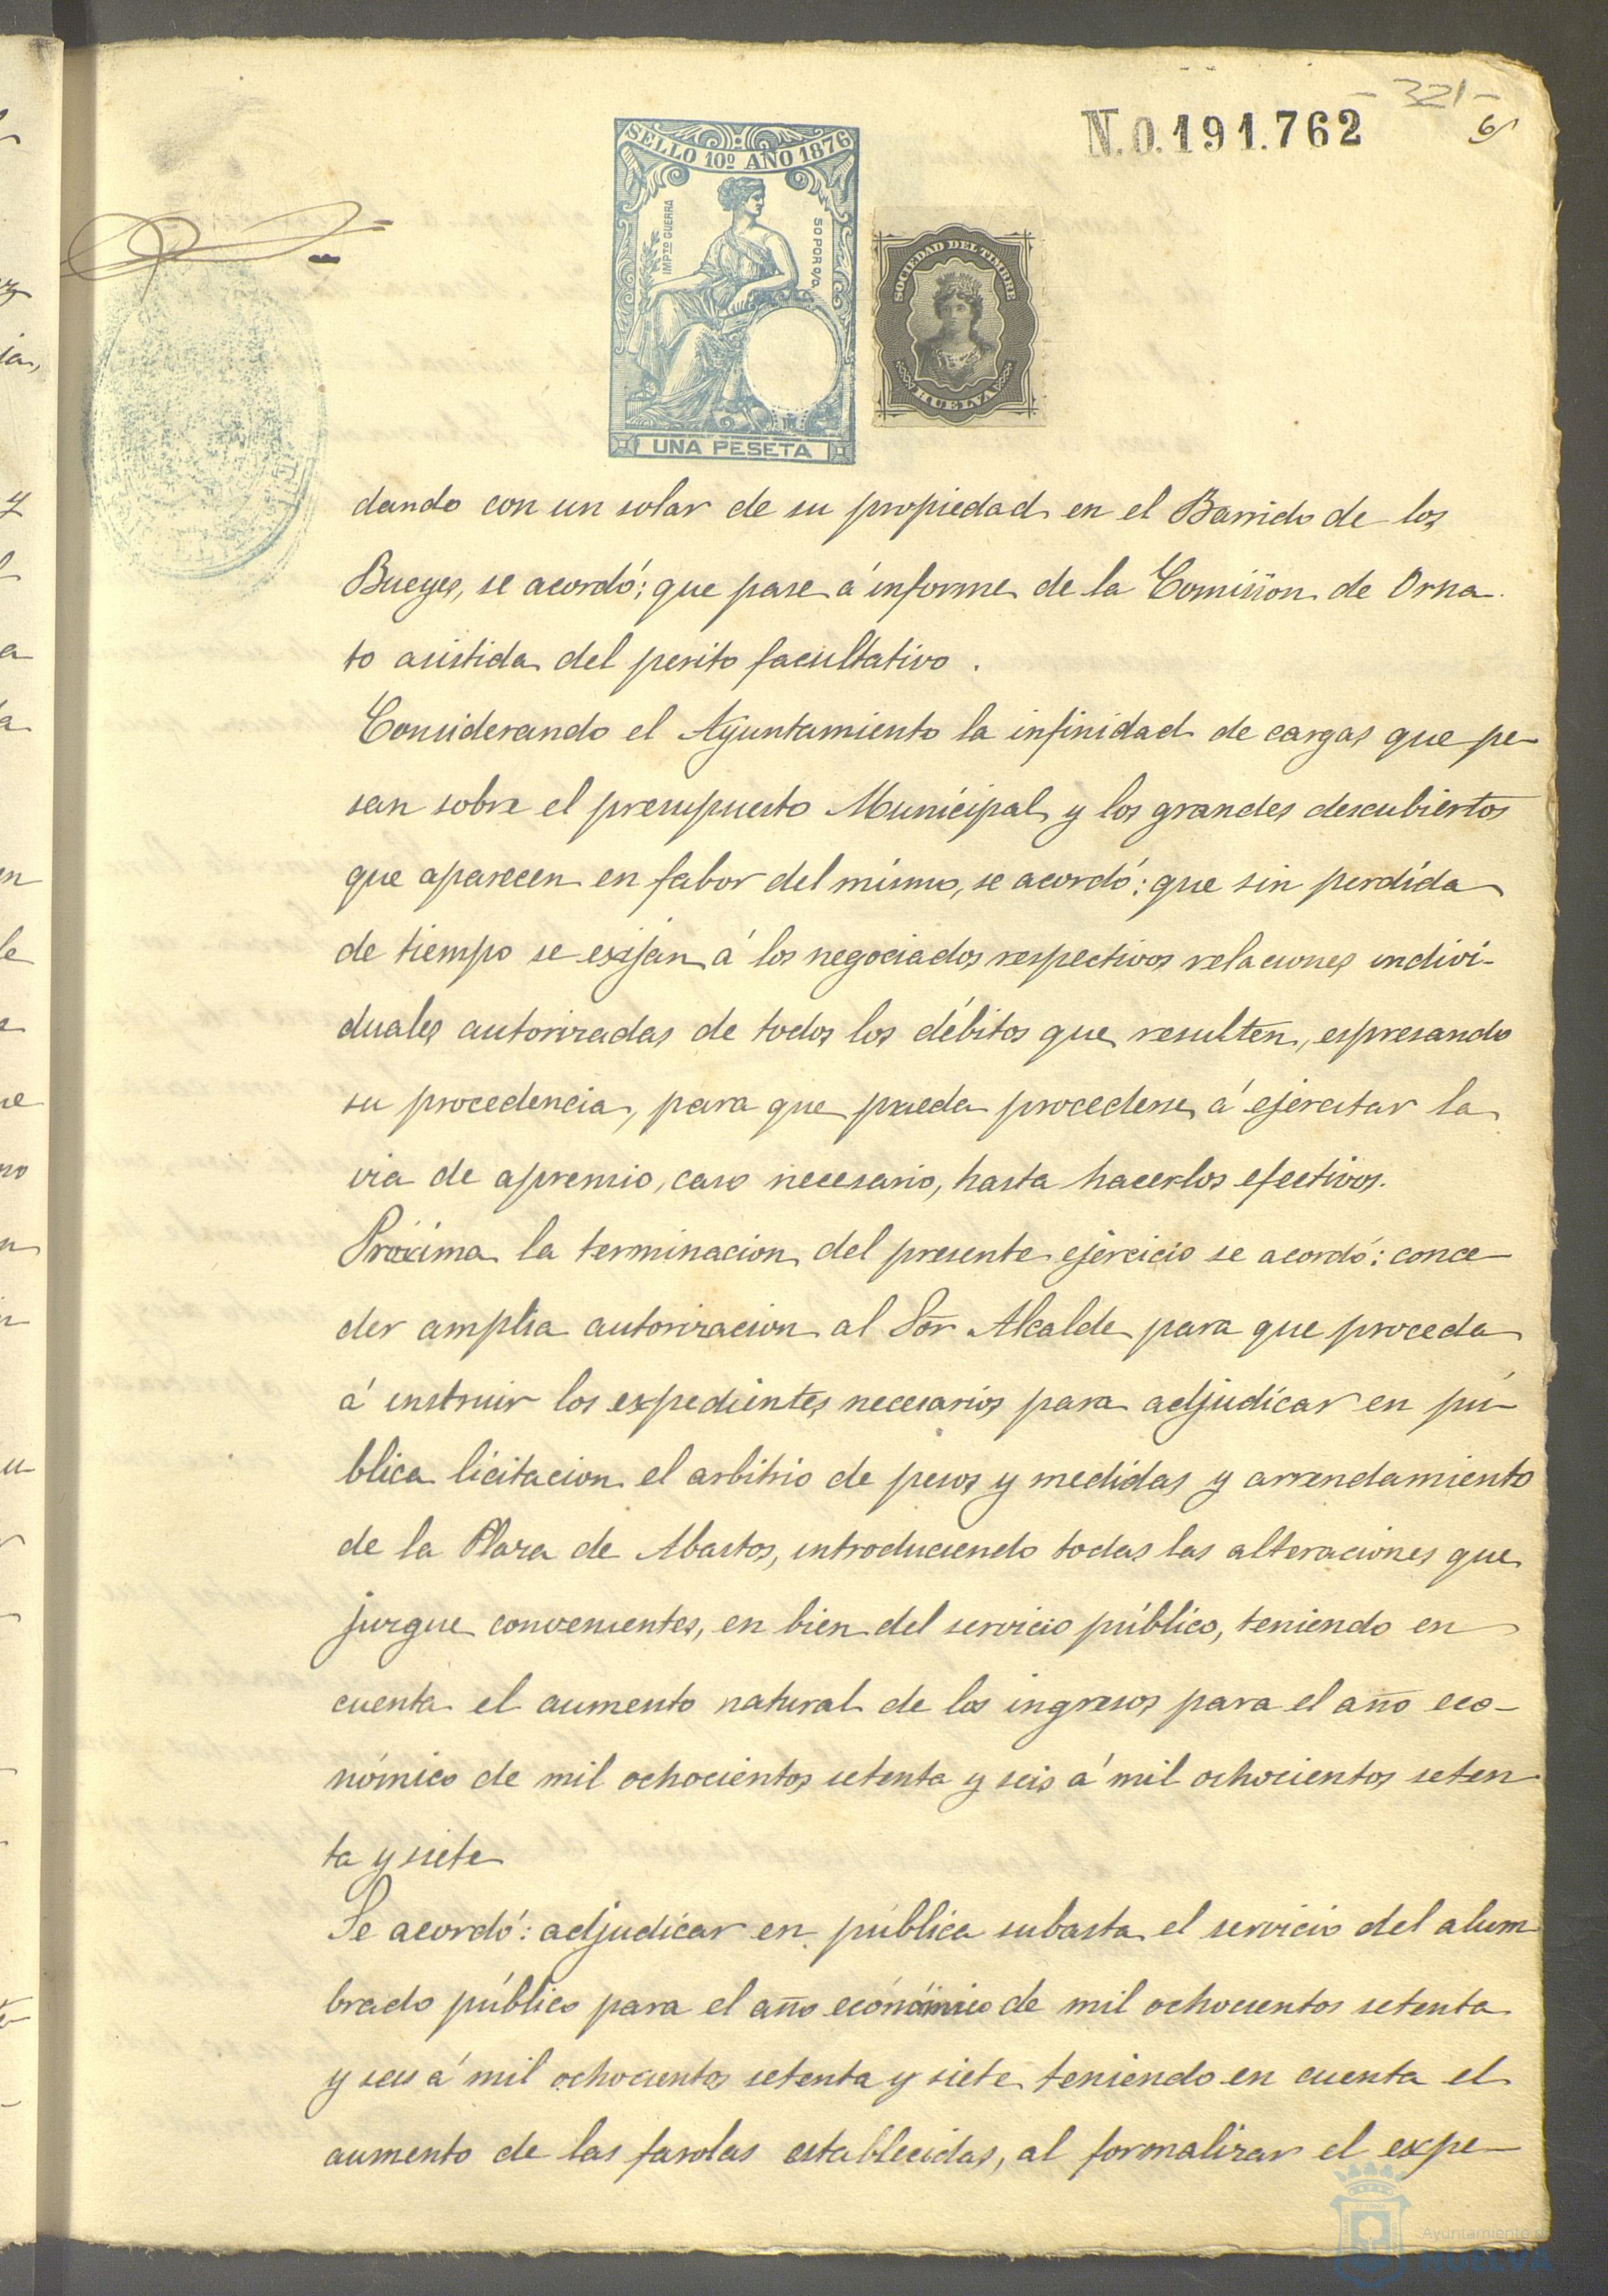 - 321 -
N.0.191.762
6
SELLO 10º AÑO 1876
IMPTO GUERRA
50 POR 0/0
UNA PESETA
SOCIEDAD DEL TIMBRE
HUELVA
dando con un solar de su propiedad en el Barrido de los
Bueyes, se acordó: que pase á informe de la Comision de Orna
to asistida del perito facultativo.
Considerando el Ayuntamiento la infinidad de cargas que pe-
san sobre el presupuesto Municipal y los grandes descubiertos
que aparecen en fabor del mismo, se acordó: que sin perdida
de tiempo se exijan á los negociados respectivos relaciones indivi-
duales autorizadas de todos los débitos que resulten, espresando
su procedencia, para que pueda procederse á ejercitar la
via de apremio, caso necesario, hasta hacerlos efectivos.
Próxima la terminacion del presente ejercicio se acordó: conce-
der amplia autorizacion al Sor Alcalde para que proceda
á instruir los expedientes necesarios para adjudicar en pú-
blica licitacion el arbitrio de pesos y medidas y arrendamiento
de la Plaza de Abastos, introduciendo todas las alteraciones que
juzgue convenientes, en bien del servicio público, teniendo en
cuenta el aumento natural de los ingresos para el año eco-
nómico de mil ochocientos setenta y seis á mil ochocientos seten
ta y siete
Se acordó: adjudicar en pública subasta el servicio del alum
brado público para el año económico de mil ochocientos setenta
y seis á mil ochocientos setenta y siete teniendo en cuenta el
aumento de las farolas establecidas, al formalizar el expe-
Ayuntamiento de
HUELVA